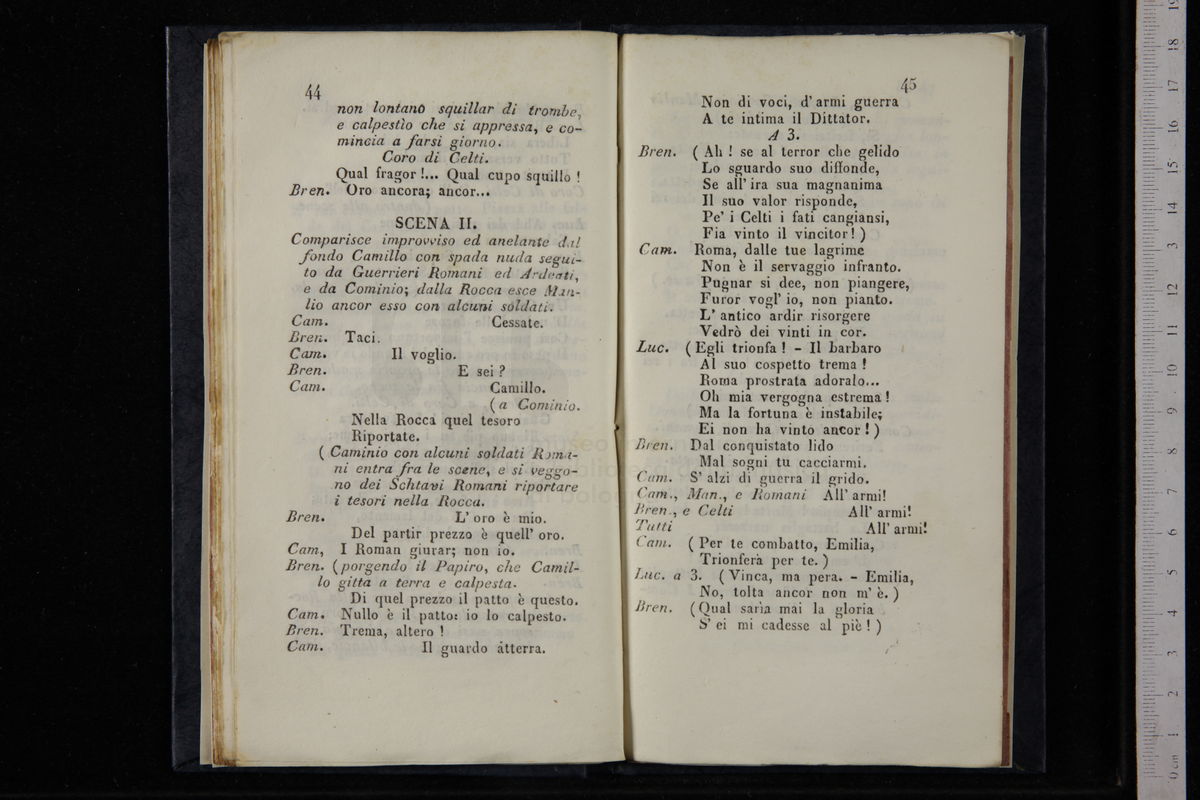 44
non lontano squillar di trombe,
e calpestio che si appressa, e co-
mincia a farsi giorno.
Coro di Celti.
Qual fragor!... Qual cupo squillo!
Bren. Oro ancora; ancor...
SCENA II.
Comparisce improvviso ed anelante dal
fondo Camillo con spada nuda segui-
to da Guerrieri Romani ed Ardeati,
e da Cominio; dalla Rocca esce Man-
lio ancor esso con alcuni soldati.
Cam. Cessate.
Bren. Taci.
Cam. Il voglio.
Bren. E sei?
Cam. Camillo.
(a Cominio.
Nella Rocca quel tesoro
Riportate.
(Caminio con alcuni soldati Roma-
ni entra fra le scene, e si veggo-
no dei Schiavi Romani riportare
i tesori nella Rocca.
Bren. L' oro è mio.
Del partir prezzo è quell' oro.
Cam, I Roman giurar; non io.
Bren. (porgendo il Papiro, che Camil-
lo gitta a terra e calpesta.
Di quel prezzo il patto è questo.
Cam. Nullo è il patto: io lo calpesto.
Bren. Trema, altero!
Cam. Il guardo atterra.
45
Non di voci, d' armi guerra
A te intima il Dittator.
A 3.
Bren. (Ah! se al terror che gelido
Lo sguardo suo diffonde,
Se all' ira sua magnanima
Il suo valor risponde,
Pe' i Celti i fati cangiansi,
Fia vinto il vincitor!)
Cam. Roma, dalle tue lagrime
Non è il servaggio infranto.
Pugnar si dee, non piangere,
Furor vogl' io, non pianto.
L' antico ardir risorgere
Vedrò dei vinti in cor.
Luc. (Egli trionfa! - Il barbaro
Al suo cospetto trema!
Roma prostrata adoralo...
Oh mia vergogna estrema!
Ma la fortuna è instabile;
Ei non ha vinto ancor!)
Bren. Dal conquistato lido
Mal sogni tu cacciarmi.
Cam. S' alzi di guerra il grido.
Cam., Man., e Romani All' armi!
Bren., e Celti All' armi!
Tutti All' armi!
Cam. (Per te combatto, Emilia,
Trionferà per te.)
Luc. a 3. (Vinca, ma pera. - Emilia,
No, tolta ancor non m' è.)
Bren. (Qual sarìa mai la gloria
S' ei mi cadesse al piè!)